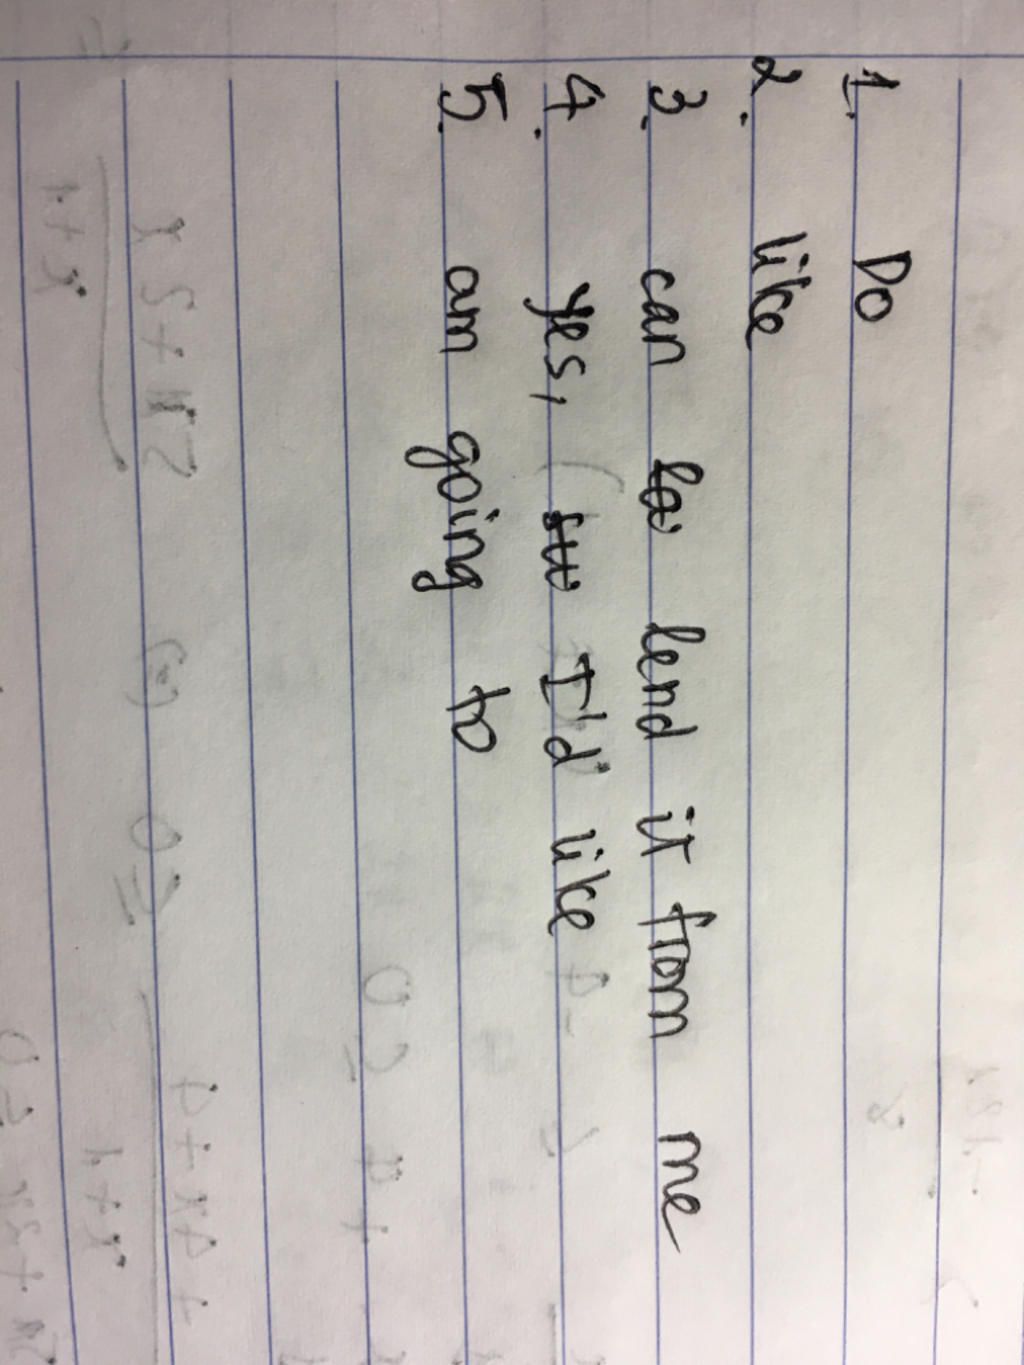 1. Do
2. like
3. can lend it from me
4. yes, I'd like
5. am going to